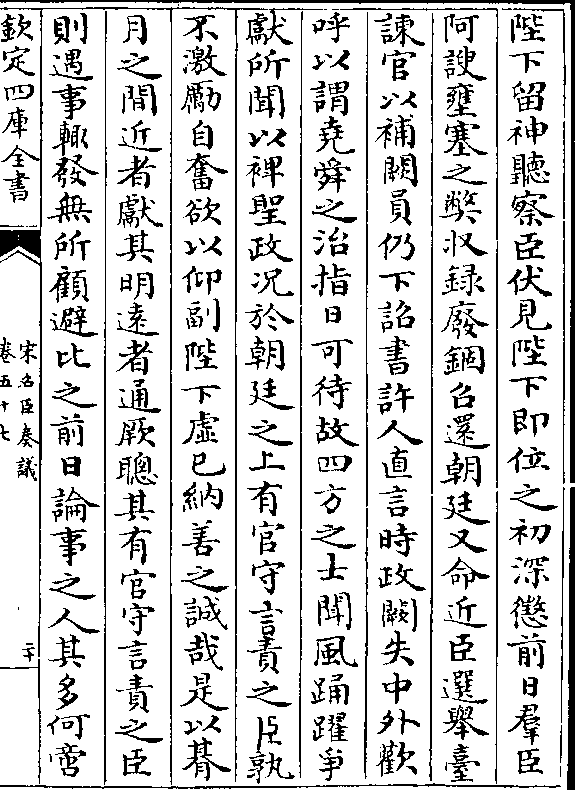 陛下留神聽察臣伏見陛下即位之初深懲前日羣臣
阿諛壅塞之弊收録廢錮召還朝廷又命近臣選舉臺
諫官以補闕員仍下詔書許人直言時政闕失中外歡
呼以謂堯舜之治指日可待故四方之士聞風踊躍爭
獻所聞以裨聖政况於朝廷之上有官守言責之臣孰
不激勵自奮欲以仰副陛下虚已納善之誠哉是以朞
月之間近者獻其明遠者通厥聰其有官守言責之臣
則遇事輙發無所顧避比之前日論事之人其多何啻
欽定四庫全書
宋名臣奏議
卷五十七
二十